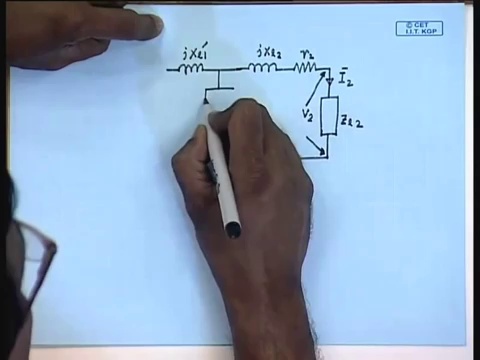 © CET
I.I.T. KGP
jxl1' jxl2 r2
Ī2
V2
Zl2